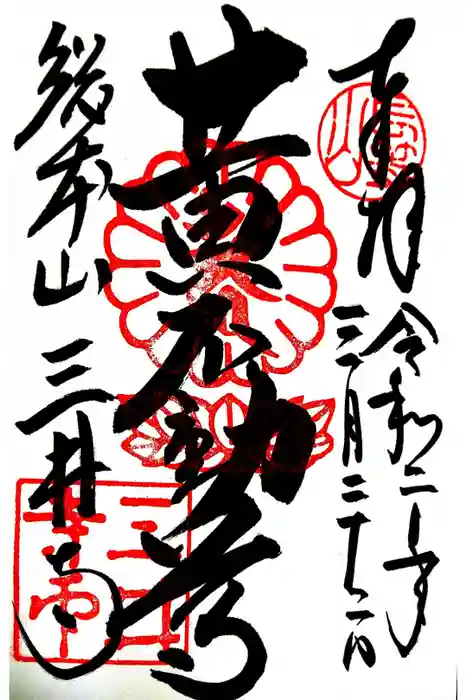 奉拝
令和二年
三月二十二日
黄不動尊
総本山 三井寺
三井
寺印